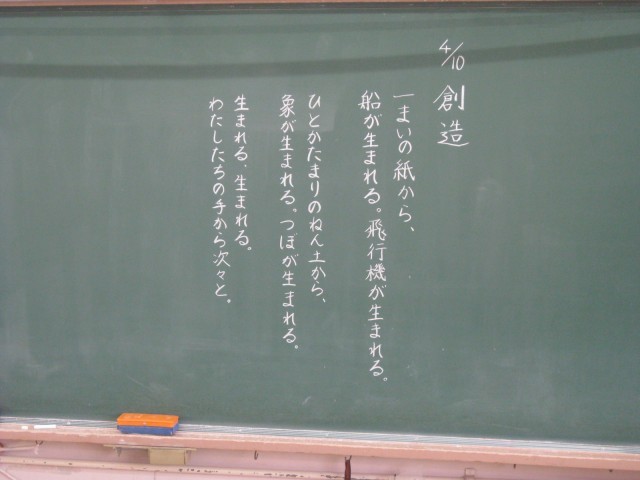 4/10 創造
一まいの紙から、
船が生まれる。飛行機が生まれる。
ひとかたまりのねん土から、
象が生まれる。つぼが生まれる。
生まれる、生まれる。
わたしたちの手から次々と。